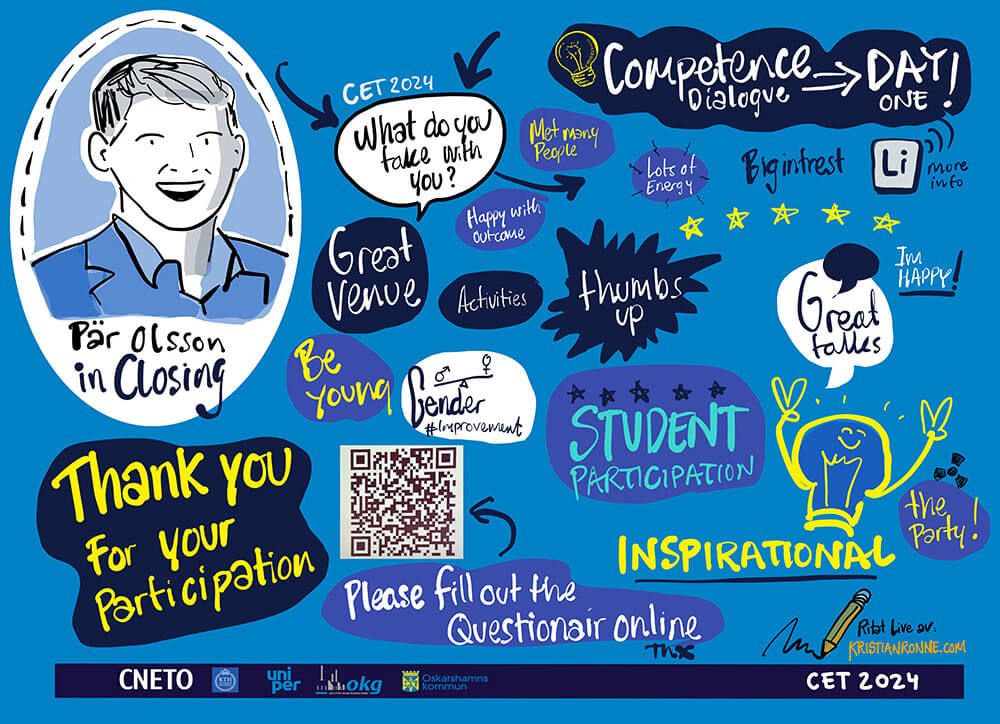 Competence
Dialogue
DAY!
ONE
CET 2024
What do you
take with
you?
Met many
People
Lots of
Energy
Big intrest
Li
more
info
Happy with
outcome
Great
venue
Activities
thumbs
up
Great
talks
I'm
HAPPY!
Pär Olsson
in Closing
Be
young
Gender
#Improvement
STUDENT
PARTICIPATION
Thank you
For your
Participation
INSPIRATIONAL
the
Party!
Please fill out the
Questionair online
Thx
Ritat Live av:
KRISTIANRONNE.COM
CNETO
KTH
uni
per
okg
Oskarshamns
kommun
CET 2024